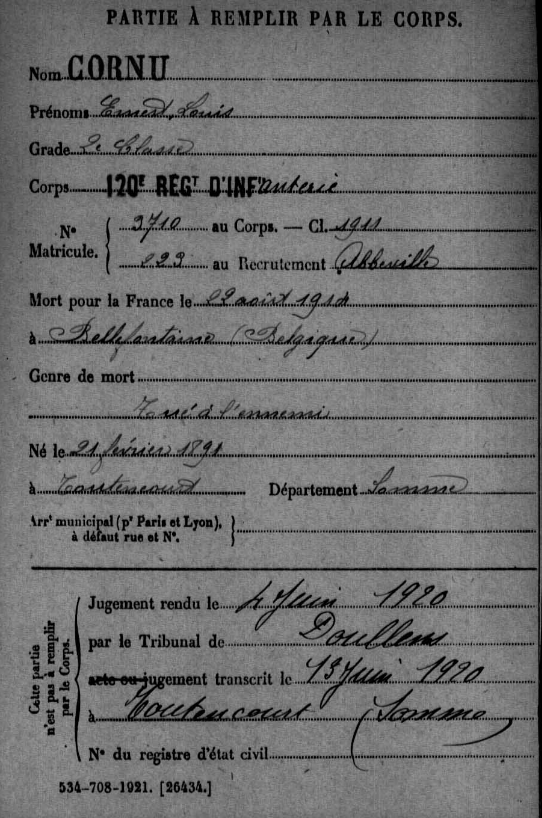 PARTIE À REMPLIR PAR LE CORPS.
Nom CORNU
Prénoms Ernest, Louis
Grade 2e Classe
Corps 120E RÉGT D'INFanterie
N° Matricule. 3710 au Corps. — Cl. 1911
023 au Recrutement Abbeville
Mort pour la France le 22 août 1914
à Bellefontaine (Belgique)
Genre de mort
Tué à l'ennemi
Né le 21 février 1891
à Toutencourt Département Somme
Arrt municipal (pr Paris et Lyon),
à défaut rue et N°.
Cette partie n'est pas à remplir par le Corps.
Jugement rendu le 4 Juin 1920
par le Tribunal de Doullens
acte ou jugement transcrit le 13 Juin 1920
à Toutencourt (Somme)
N° du registre d'état civil
534-708-1921. [26434.]